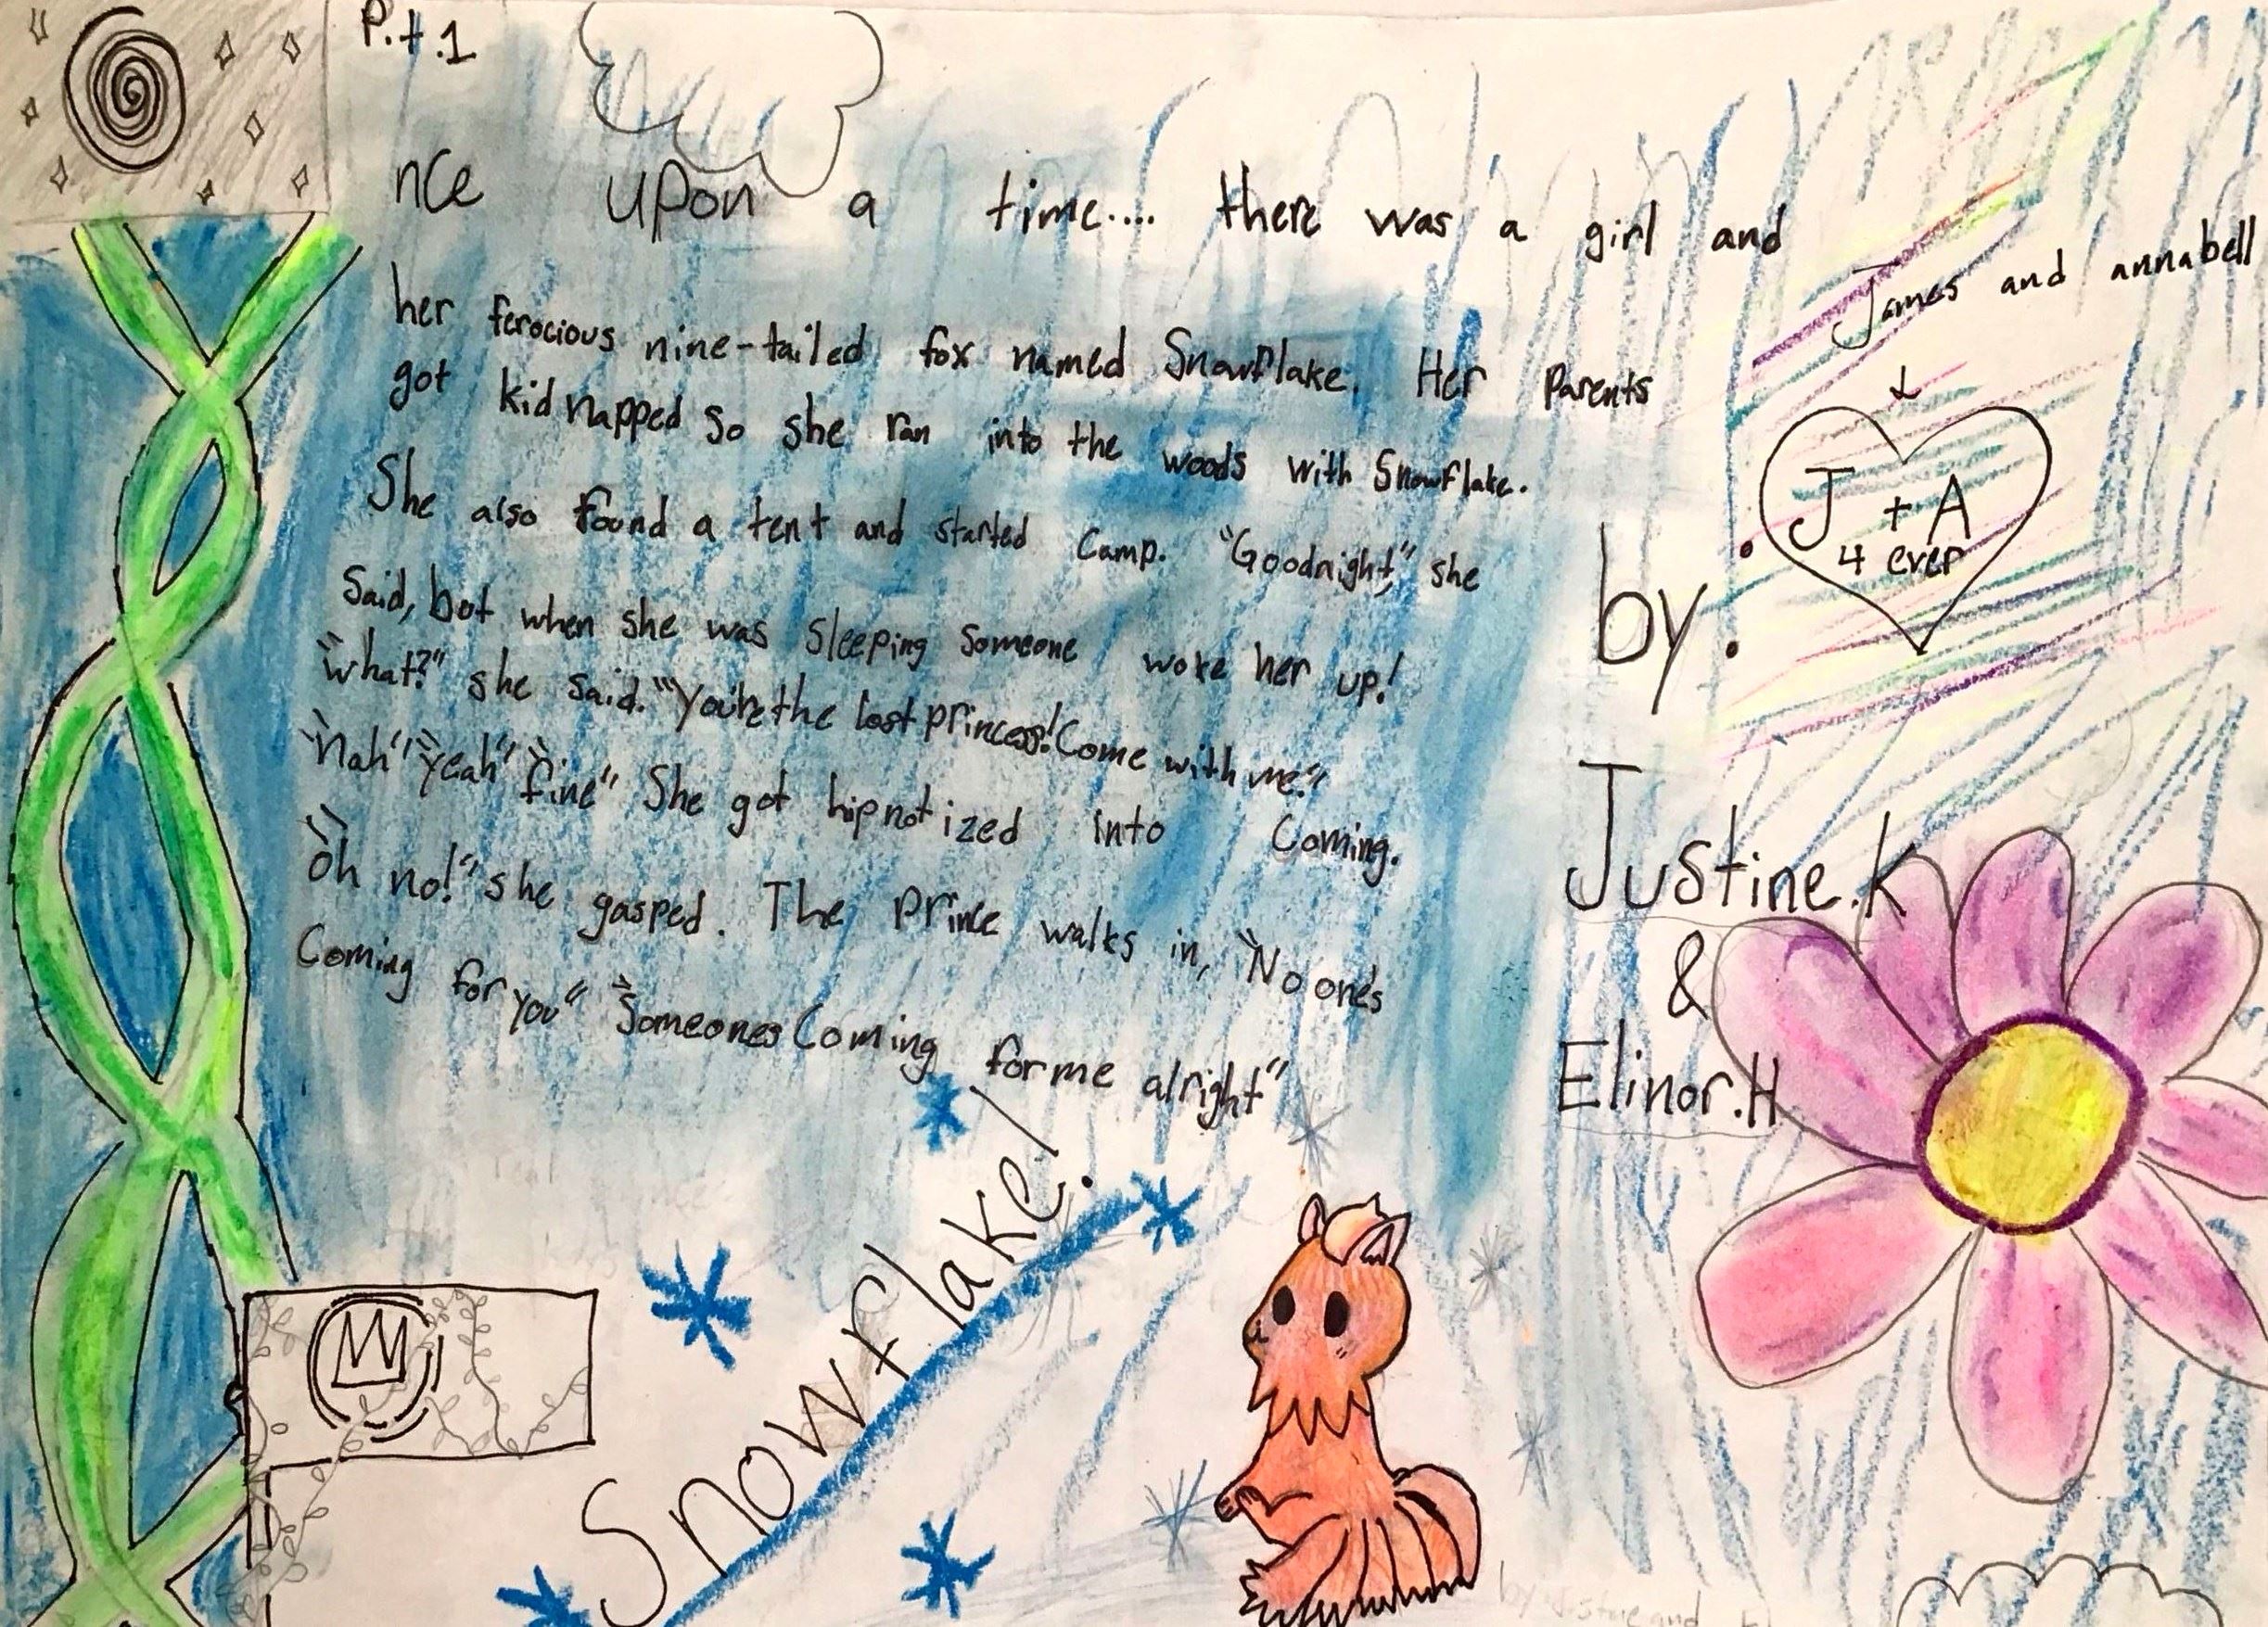 P.t.1
nce upon a time.... there was a girl and
her ferocious nine-tailed fox named Snowflake. Her Parents
got kidnapped so she ran into the woods with Snowflake.
She also found a tent and started Camp. "Goodnight," she
Said, but when she was Sleeping Someone woke her up!
"what?" she said. "You're the lost princess! Come with me."
"Nah" "yeah" "fine" She got hipnotized into Coming.
"oh no!" she gasped. The Prince walks in, "No one's
Coming for you" "Someones Coming for me alright"
Snowflake!
James and annabell
J + A
4 ever
by:
Justine.K
&
Elinor.H
by Justine and